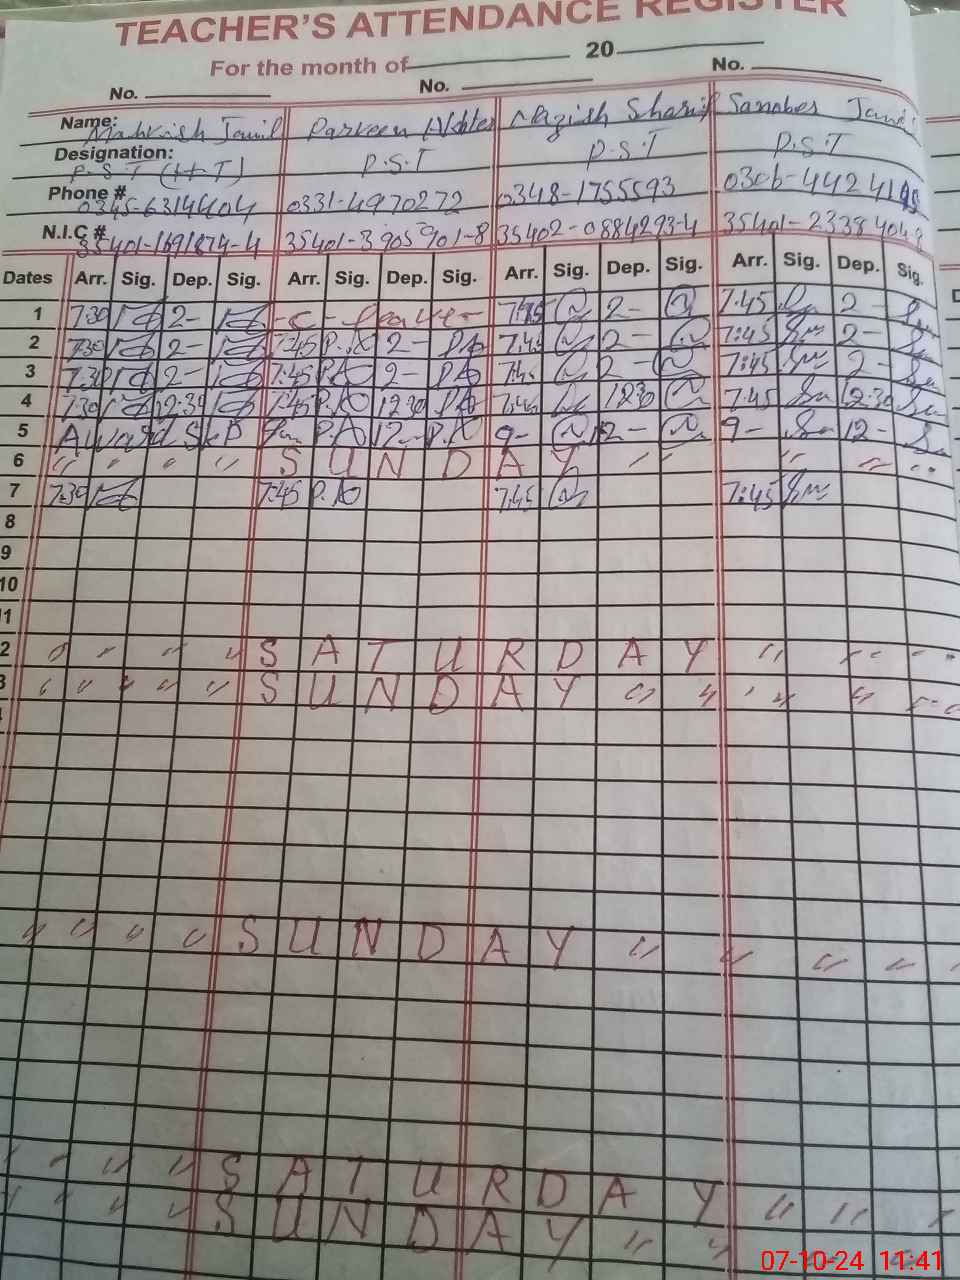 TEACHER'S ATTENDANCE REGISTER
For the month of 20
No. No. No.
Name: Mahwish Jamil Parveen Akhter Nazish Sharif Jamil
Designation: P.S.T (H.T) P.S.T P.S.T P.S.T
Phone # 0345-6314404 0331-4970272 0348-1755593 0306-4424195
N.I.C # 35401-1691874-4 35401-3905901-8 35402-0884293-4 35401-2338404-8
Dates Arr. Sig. Dep. Sig. Arr. Sig. Dep. Sig. Arr. Sig. Dep. Sig. Arr. Sig. Dep. Sig.
1 7:30 2- -C- leave- 7:45 2- 7:45 2-
2 7:30 2- 7:45 P.A 2- P.A 7:45 2- 7:45 2-
3 7:30 2- 7:45 P.A 2- P.A 7:45 2- 7:45 2-
4 7:30 12:30 7:45 P.A 12:30 P.A 7:45 12:30 7:45 12:30
5 P.A 12- P.A 9- 12- 9- 12-
6 " " " " S U N D A Y " " " "
7 7:30 7:45 P.A 7:45 7:45
8
9
10
11
2 " " " " S A T U R D A Y " " " "
3 " " " " " S U N D A Y " " " " " "
" " " " S U N D A Y " " " " "
" " " " S A T U R D A Y " " "
" " " " S U N D A Y " "
07-10-24 11:41